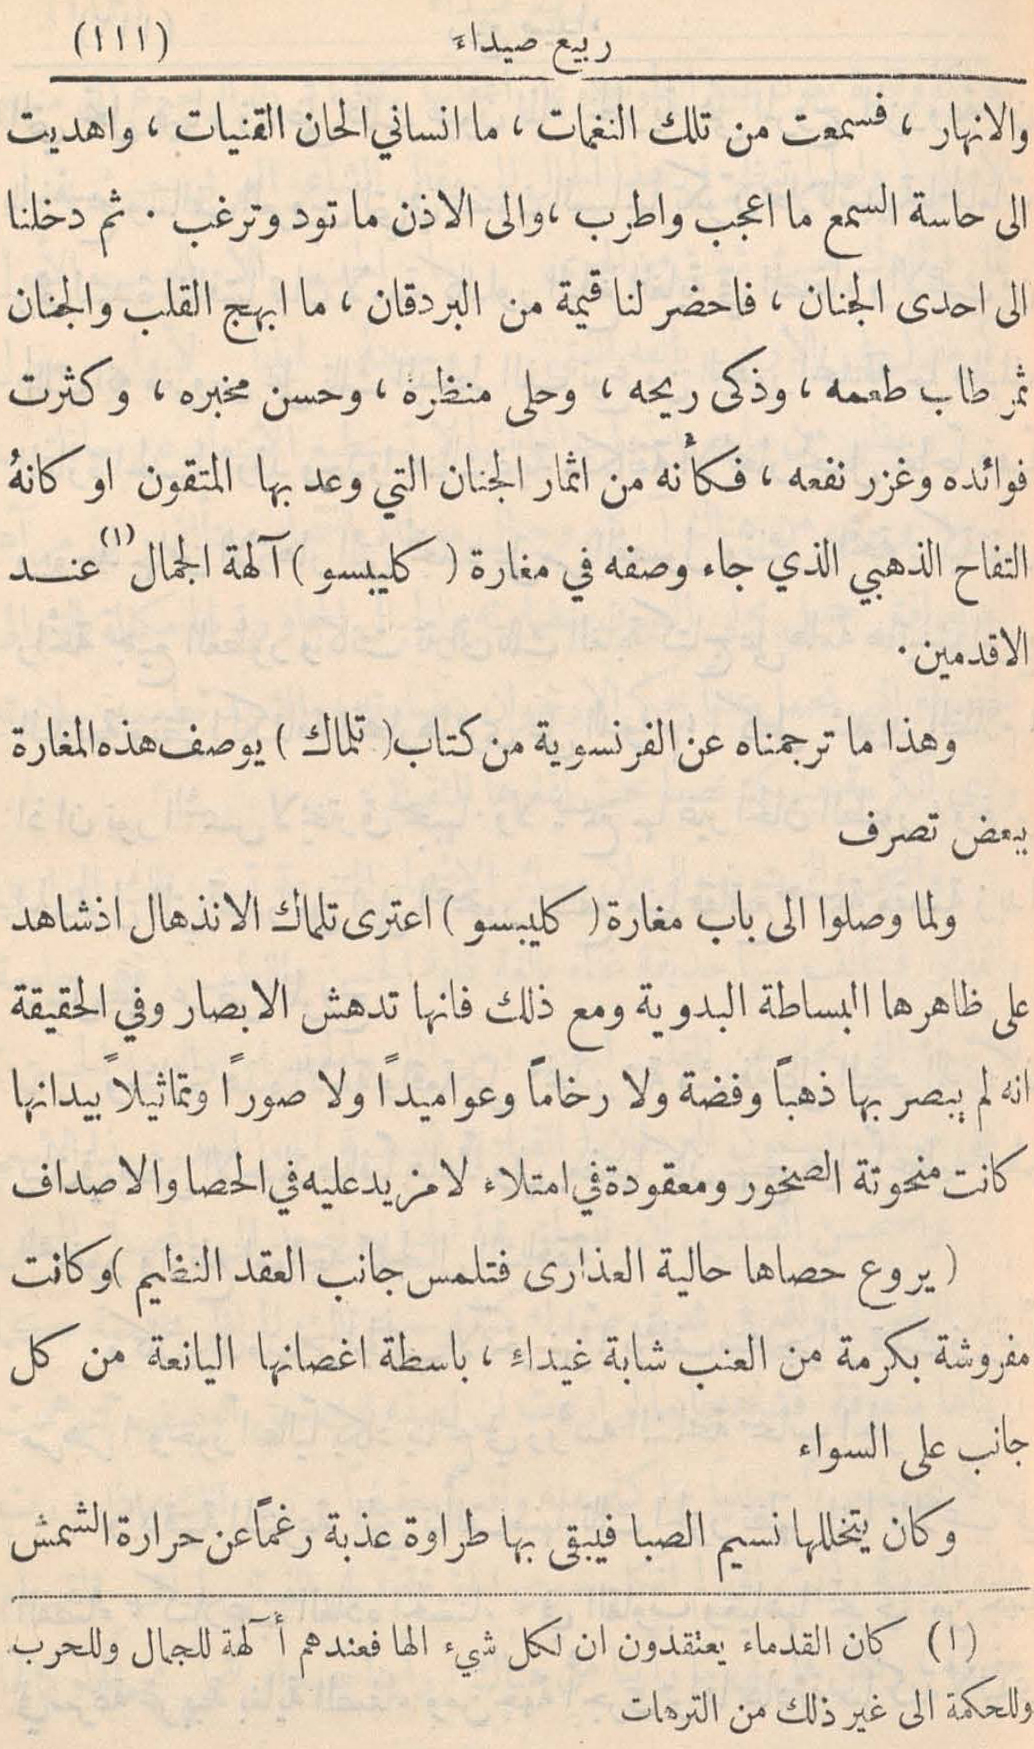 ربيع صيداء (١١١)
والانهار ، فسمعت من تلك النغمات ، ما انساني الحان القنيات ، واهديت
الى حاسة السمع ما اعجب واطرب ،والى الاذن ما تود وترغب . ثم دخلنا
الى احدى الجنان ، فاحضر لنا قيمة من البردقان ، ما ابهج القلب والجنان
ثمر طاب طعمه ، وذكى ريحه ، وحلى منظره ، وحسن مخبره ، وكثرت
فوائده وغزر نفعه ، فكأنه من اثمار الجنان التي وعد بها المتقون او كانهُ
التفاح الذهبي الذي جاء وصفه في مغارة ( كليبسو ) آلهة الجمال (١) عند
الاقدمين .
وهذا ما ترجمناه عن الفرنسوية من كتاب ( تلماك ) يوصف هذه المغارة
ببعض تصرف
ولما وصلوا الى باب مغارة ( كليبسو ) اعترى تلماك الانذهال اذ شاهد
على ظاهرها البساطة البدوية ومع ذلك فانها تدهش الابصار وفي الحقيقة
انه لم يبصر بها ذهباً وفضة ولا رخاماً وعواميداً ولا صوراً وتماثيلاً بيدانها
كانت منحوتة الصخور ومعقودة في امتلاء لامزيد عليه في الحصا والاصداف
( يروع حصاها حالية العذارى فتلمس جانب العقد النظيم ) وكانت
مفروشة بكرمة من العنب شابة غيداءِ ، باسطة اغصانها اليانعة من كل
جانب على السواء
وكان يتخللها نسيم الصبا فيبقى بها طراوة عذبة رغماً عن حرارة الشمش
(١) كان القدماء يعتقدون ان لكل شيء الها فعندهم أآلهة للجمال وللحرب
وللحكمة الى غير ذلك من الترهات